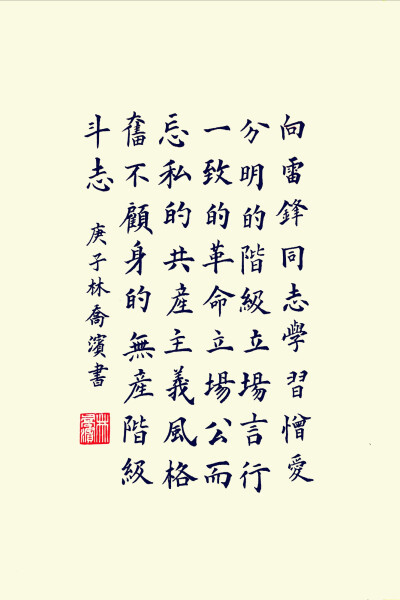 向雷鋒同志學習憎愛
分明的階級立場言行
一致的革命立場公而
忘私的共產主義風格
奮不顧身的無產階級
斗志
庚子林喬濱書